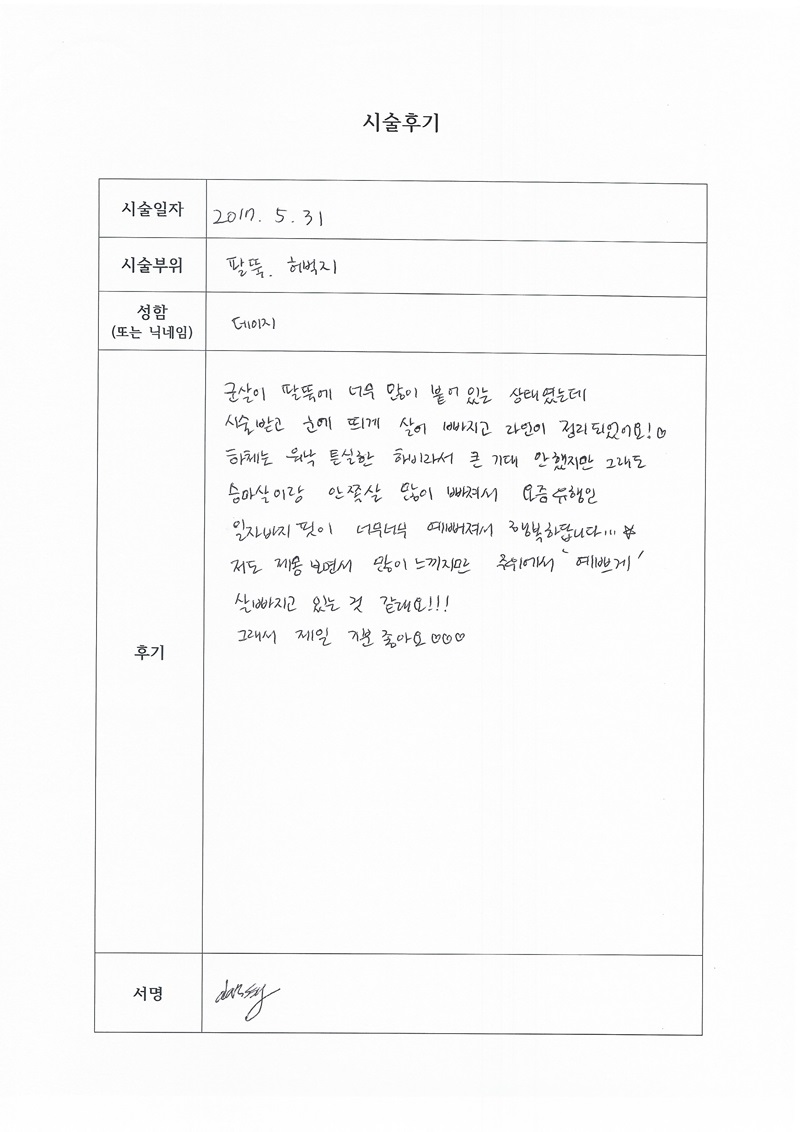 시술후기
시술일자 2017. 5. 31
시술부위 팔뚝. 허벅지
성함
(또는 닉네임) 데이지
후기
군살이 팔뚝에 너무 많이 붙어있는 상태였는데
시술받고 눈에 띄게 살이 빠지고 라인이 정리되었어요!♡
하체는 워낙 튼실한 하비라서 큰 기대 안했지만 그래도
승마살이랑 안쪽살 많이 빠져서 요즘유행인
일자바지 핏이 너무너무 예뻐져서 행복하답니다...☆
저도 제몸 보면서 많이 느끼지만 주위에서 '예쁘게'
살빠지고 있는 것 같대요!!!
그래서 제일 기분 좋아요♡♡♡
서명